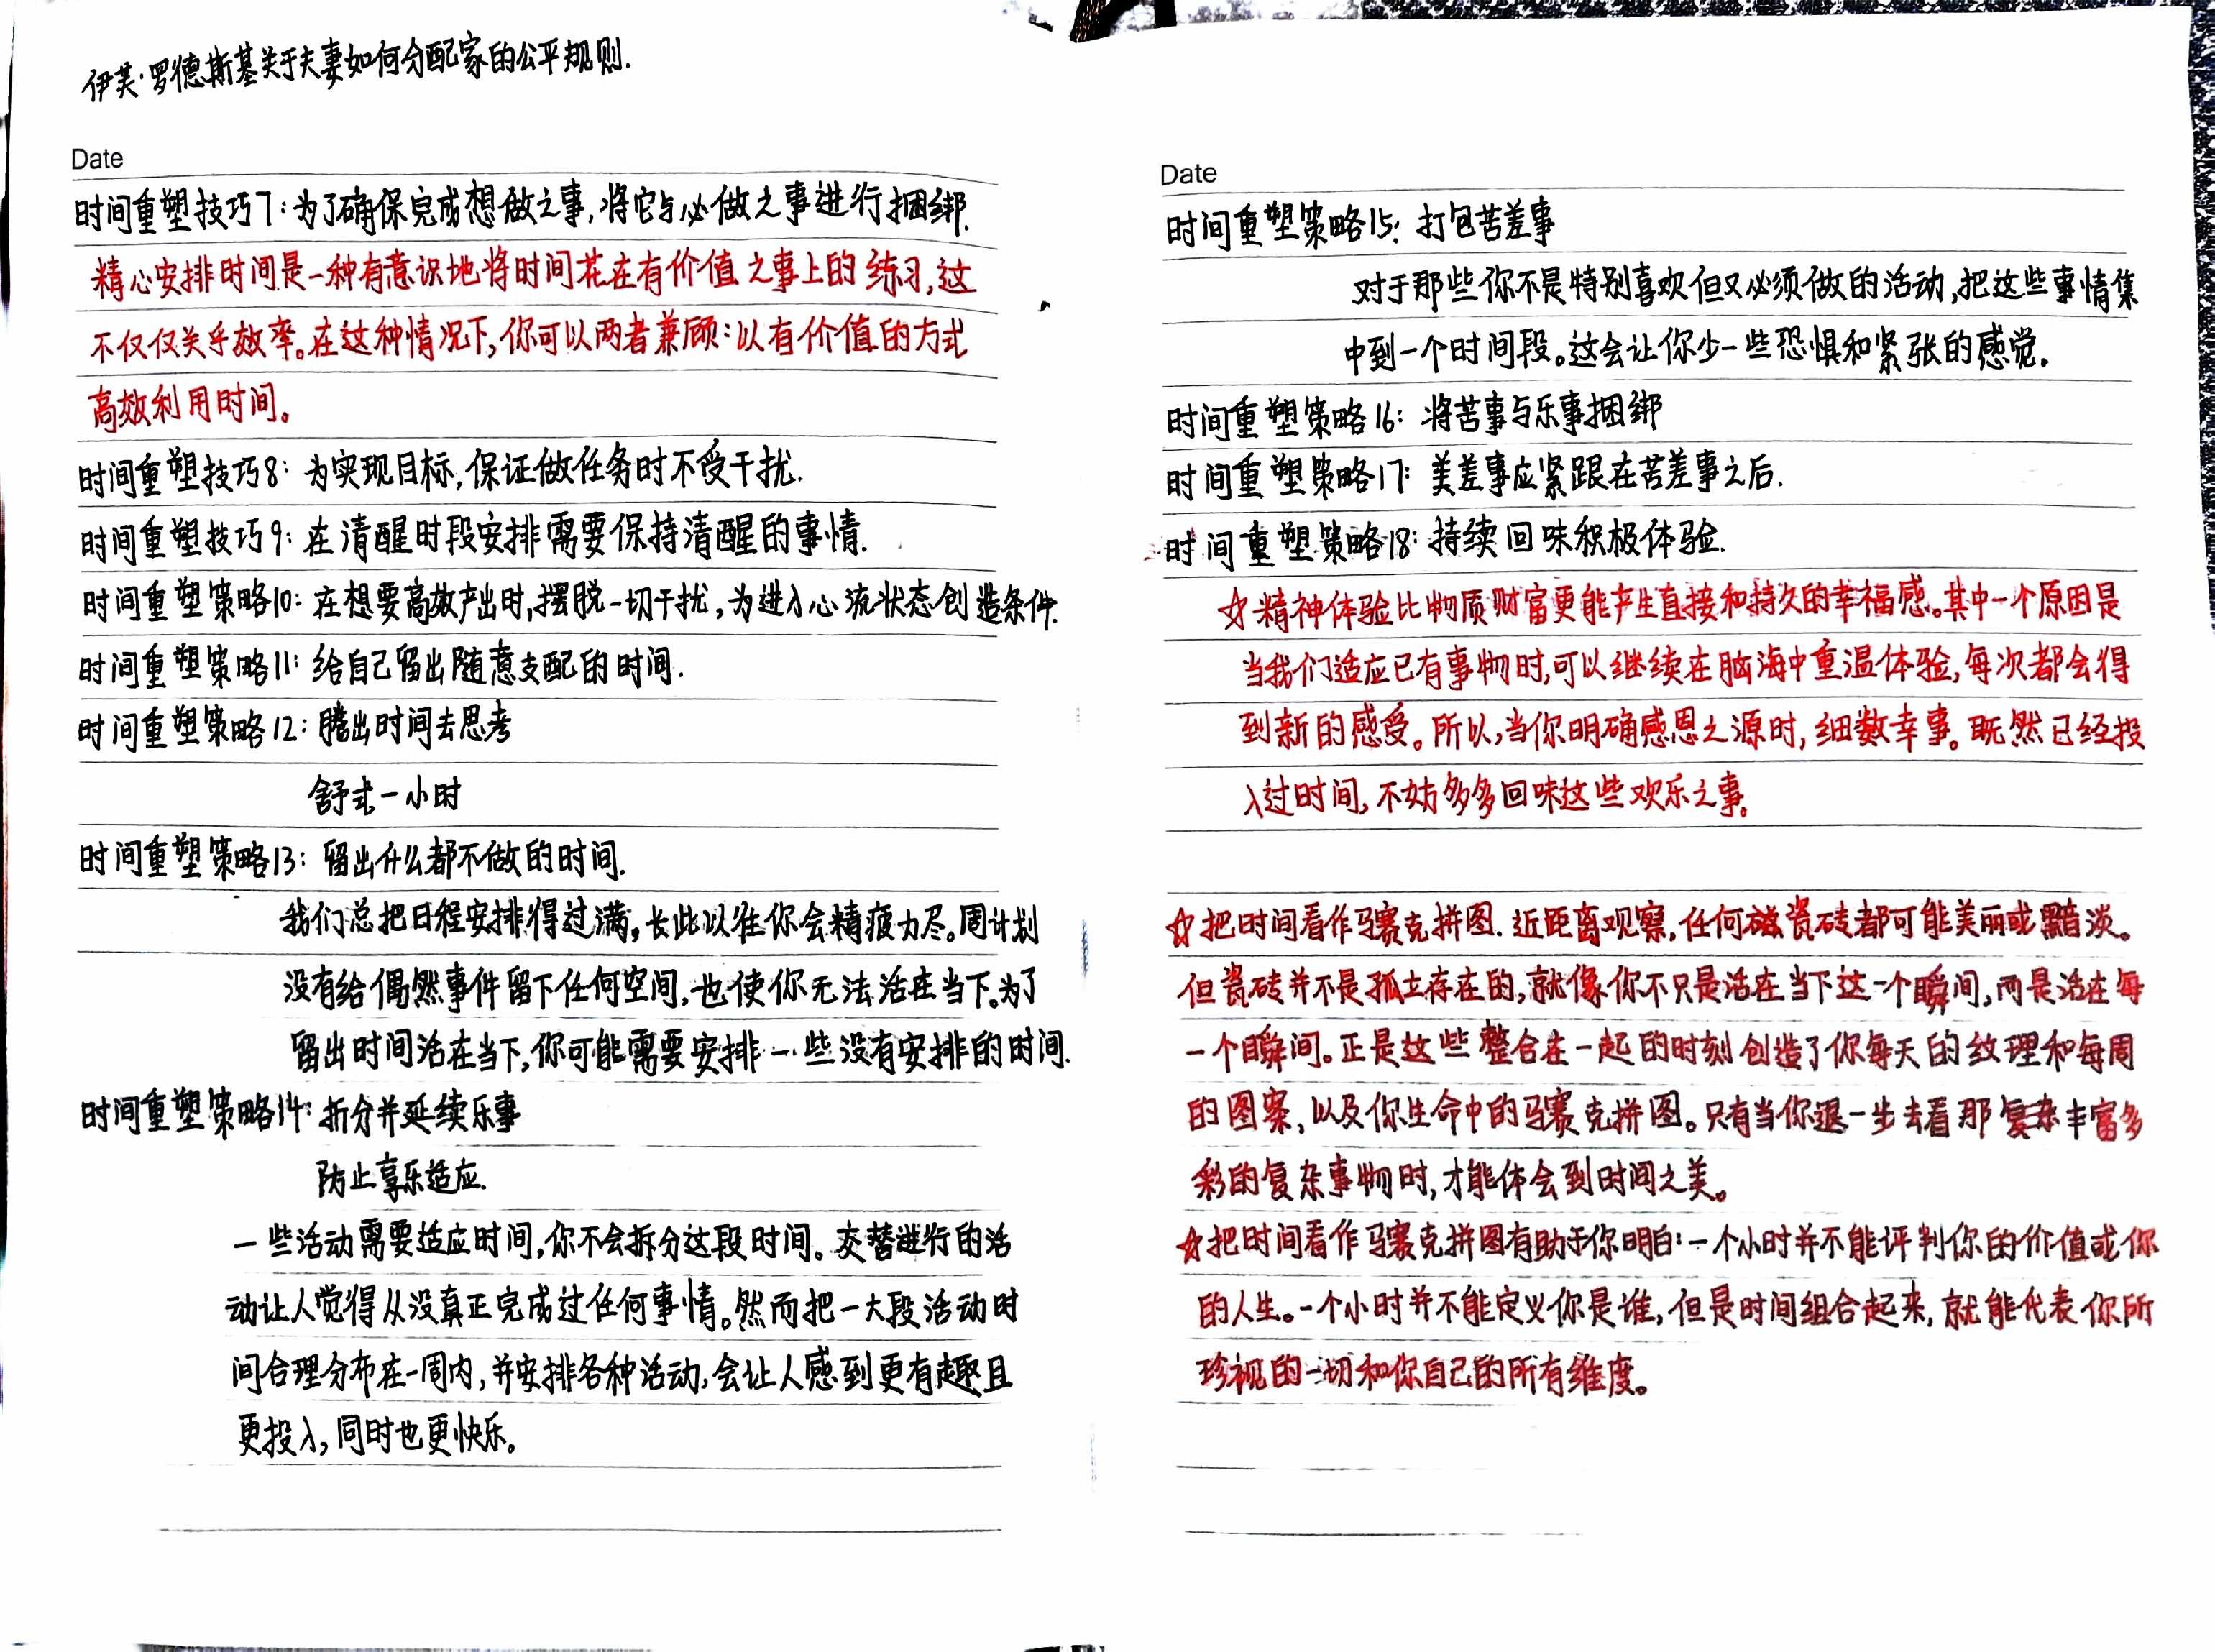 伊芙·罗德斯基关于夫妻如何分配家的公平规则.
Date
时间重塑技巧7:为了确保完成想做之事,将它与必做之事进行捆绑.
精心安排时间是一种有意识地将时间花在有价值之事上的练习,这
不仅仅关乎效率。在这种情况下,你可以两者兼顾:以有价值的方式
高效利用时间。
时间重塑技巧8:为实现目标,保证做任务时不受干扰.
时间重塑技巧9:在清醒时段安排需要保持清醒的事情.
时间重塑策略10:在想要高效产出时,摆脱一切干扰,为进入心流状态创造条件.
时间重塑策略11:给自己留出随意支配的时间.
时间重塑策略12:腾出时间去思考
舒式一小时
时间重塑策略13:留出什么都不做的时间.
我们总把日程安排得过满,长此以往你会精疲力尽。周计划
没有给偶然事件留下任何空间,也使你无法活在当下。为了
留出时间活在当下,你可能需要安排一些没有安排的时间.
时间重塑策略14:拆分并延续乐事
防止享乐适应.
一些活动需要适应时间,你不会拆分这段时间。交替进行的活
动让人觉得从没真正完成过任何事情。然而把一大段活动时
间合理分布在一周内,并安排各种活动,会让人感到更有趣且
更投入,同时也更快乐。
Date
时间重塑策略15:打包苦差事
对于那些你不是特别喜欢但又必须做的活动,把这些事情集
中到一个时间段。这会让你少一些恐惧和紧张的感觉.
时间重塑策略16:将苦事与乐事捆绑
时间重塑策略17:美差事应紧跟在苦差事之后.
时间重塑策略18:持续回味积极体验.
☆精神体验比物质财富更能产生直接和持久的幸福感。其中一个原因是
当我们适应已有事物时,可以继续在脑海中重温体验,每次都会得
到新的感受。所以,当你明确感恩之源时,细数幸事。既然已经投
入过时间,不妨多多回味这些欢乐之事。
☆把时间看作马赛克拼图.近距离观察,任何磁瓷砖都可能美丽或黯淡。
但瓷砖并不是孤立存在的,就像你不只是活在当下这一个瞬间,而是活在每
一个瞬间。正是这些整合在一起的时刻创造了你每天的纹理和每周
的图案,以及你生命中的马赛克拼图。只有当你退一步去看那复杂丰富多
彩的复杂事物时,才能体会到时间之美。
☆把时间看作马赛克拼图有助于你明白:一个小时并不能评判你的价值或你
的人生。一个小时并不能定义你是谁,但是时间组合起来,就能代表你所
珍视的一切和你自己的所有维度。